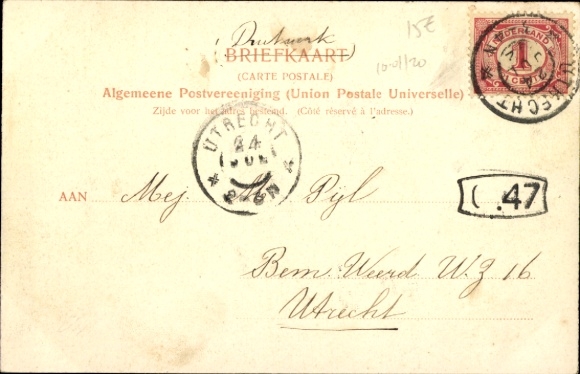 Drukwerk
15E
BRIEFKAART
(CARTE POSTALE)
10-01/20
Algemeene Postvereeniging (Union Postale Universelle)
Zijde voor het adres bestemd. (Côté réservé à l'adresse.)
NEDERLAND
1
CENT
UTRECHT
UTRECHT
24
JUL
AAN Mej. M. Pijl
.47
Bem. Weerd W.Z 16
Utrecht